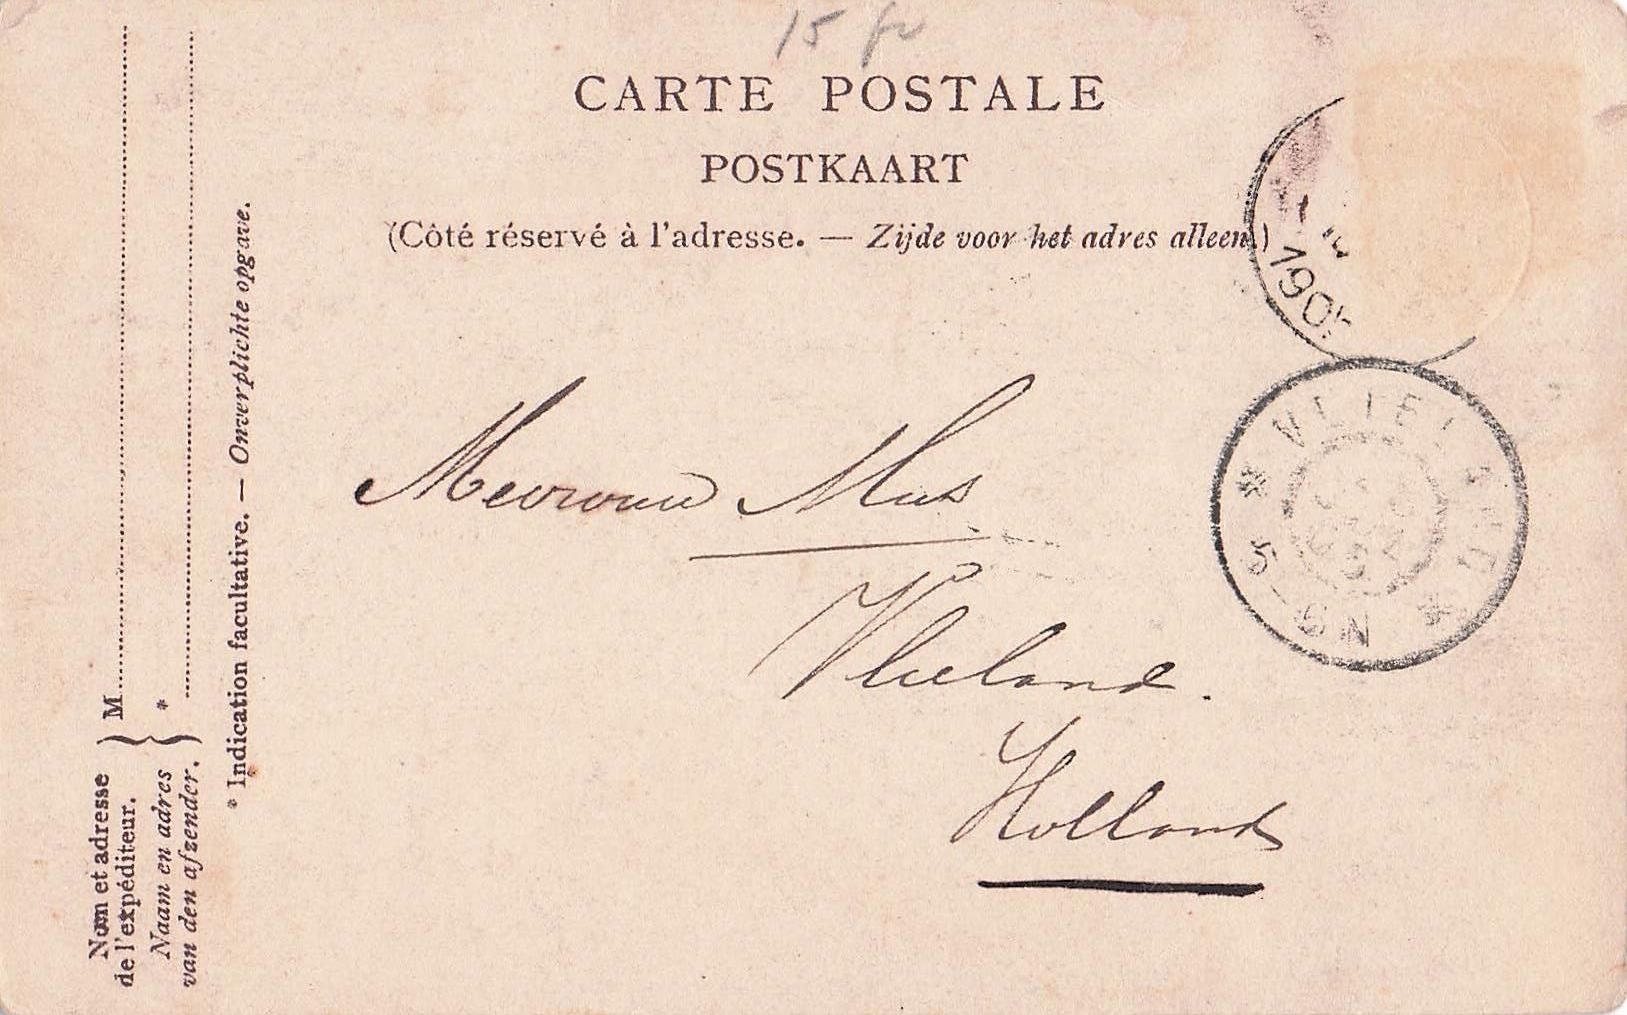 15 fr
CARTE POSTALE
POSTKAART
(Côté réservé à l'adresse. — Zijde voor het adres alleen.)
190
VLIEL
5-6 N
Mevrouw Mus
Vlieland.
Holland
Nom et adresse
de l'expéditeur.
Naam en adres
van den afzender.
M
*
* Indication facultative. — Onverplichte opgave.